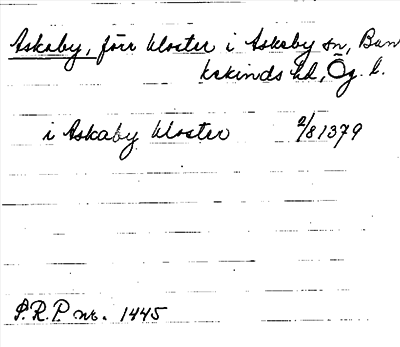 Askaby, förr kloster i Askaby sn, Ban
kekinds hd, Ög. l.
i Askaby kloster 2/8 1379
S.R.P. nr. 1445